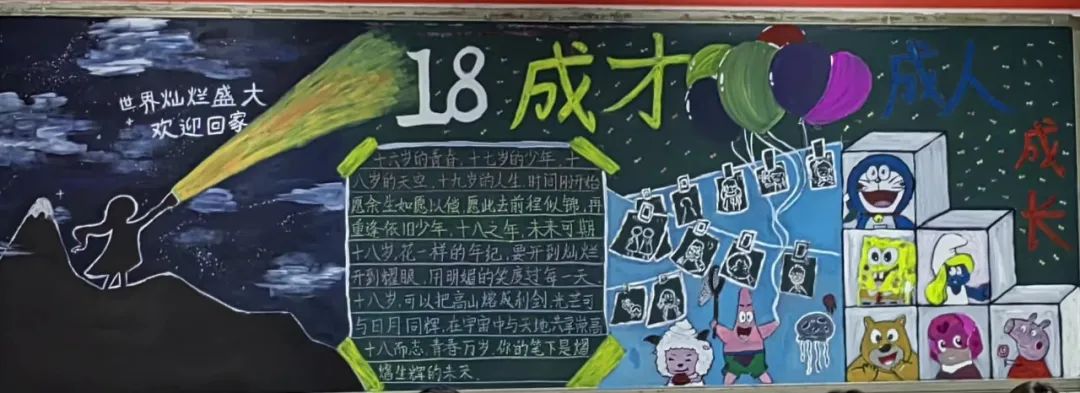 世界灿烂盛大
欢迎回家
18 成才
成人
成长
十六岁的青春,十七岁的少年,十
八岁的天空,十九岁的人生,时间刚开始
愿余生如愿以偿,愿此去前程似锦,再
重逢依旧少年,十八之年,未来可期
十八岁,花一样的年纪,要开到灿烂
开到耀眼,用明媚的笑度过每一天
十八岁,可以把高山熔成利剑,光芒可
与日月同辉,在宇宙中与天地共享崇高
十八而志,青春万岁,你的笔下是熠
熠生辉的未来.